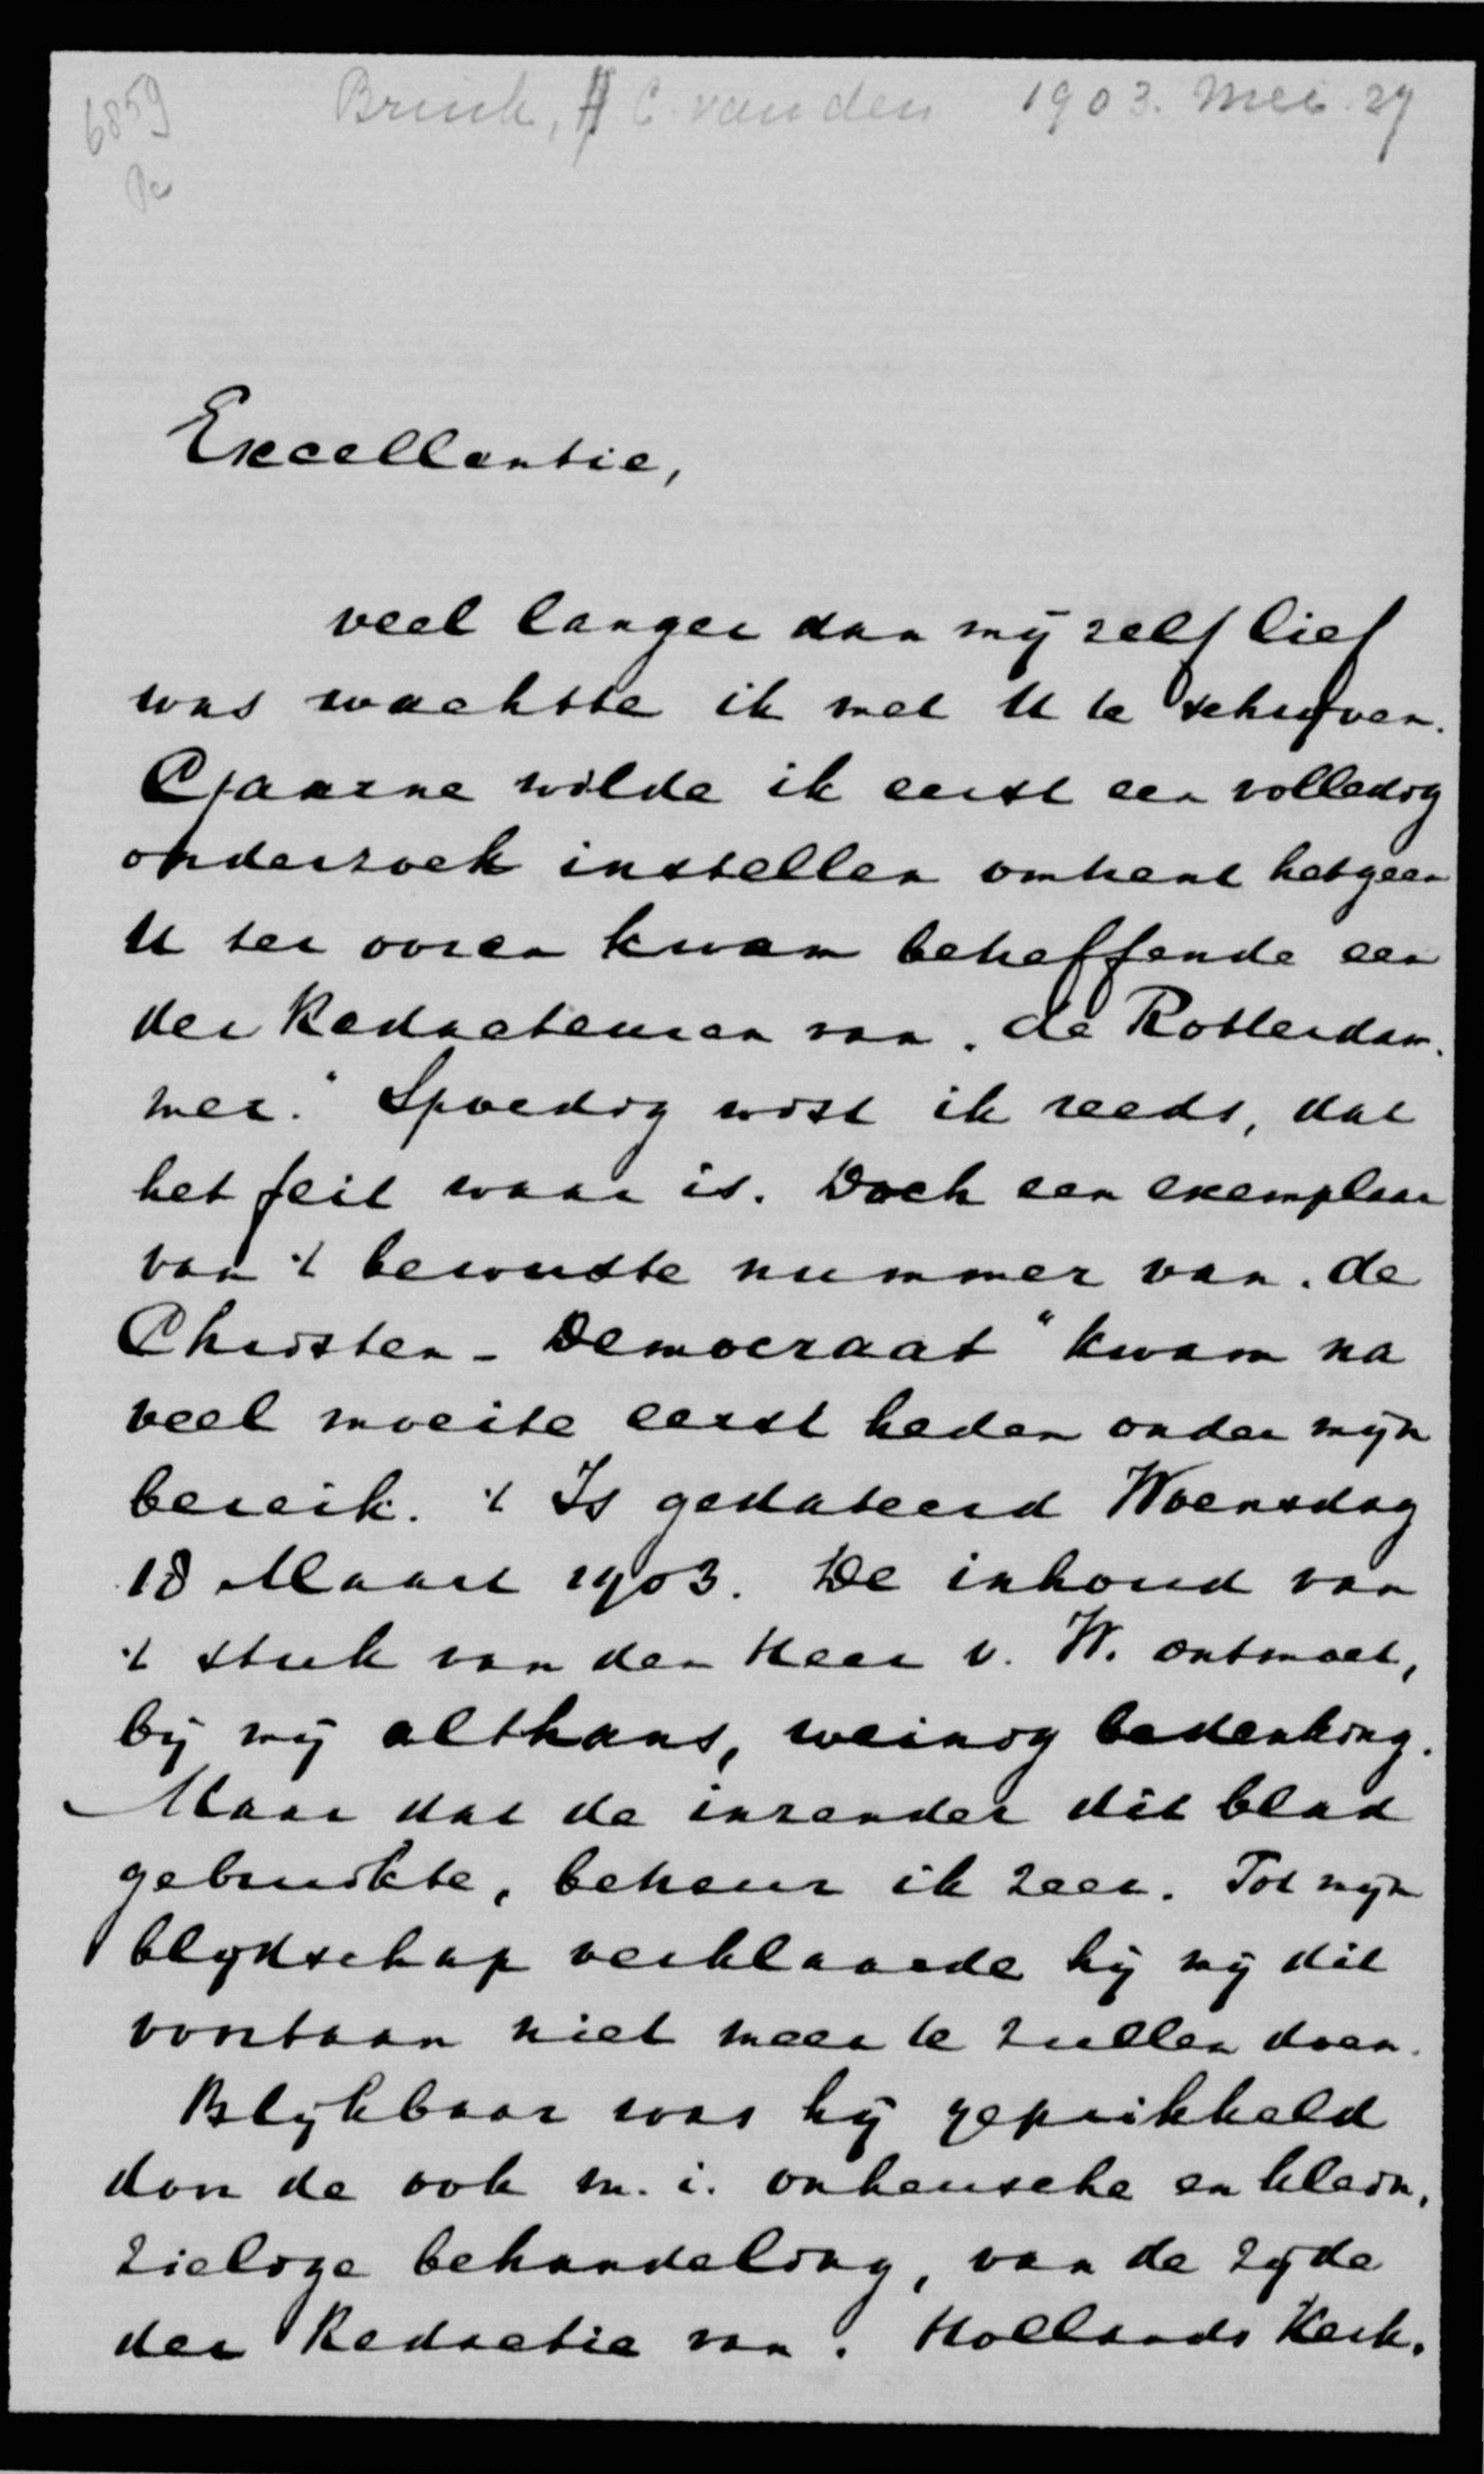 6859
Brink, A C. van den 1903. Mei. 29
Excellentie,
veel langer dan mij zelf lief
was wachtte ik met U te schrijven.
Gaarne wilde ik eerst een volledig
onderzoek instellen omtrent hetgeen
U ter ooren kwam betreffende een
der Redacteuren van „de Rotterdam-
mer." Spoedig wist ik reeds, dat
het feit waar is. Doch een exemplaar
van 't bewuste nummer van „de
Christen-Democraat" kwam na
veel moeite eerst heden onder mijn
bereik. 't Is gedateerd Woensdag
18 Maart 1903. De inhoud van
't stuk van den Heer v. W. ontmoet,
bij mij althans, weinig bedenking.
Maar dat de inzender dit blad
gebruikte, betreur ik zeer. Tot mijn
blijdschap verklaarde hij mij dit
voortaan niet meer te zullen doen.
Blijkbaar was hij geprikkeld
door de ook m. i. onheusche en klein-
zielige behandeling, van de zijde
der Redactie van „Hollands Kerk-